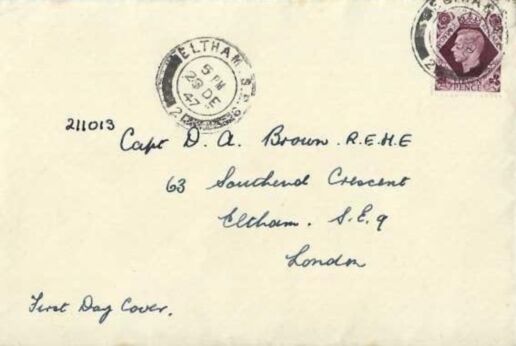 ELTHAM. S.E.9
5 PM
29 DE
47
211013
Capt D. A. Brown. R.E.M.E
63 Southend Crescent
Eltham. S.E.9
London
First Day Cover.